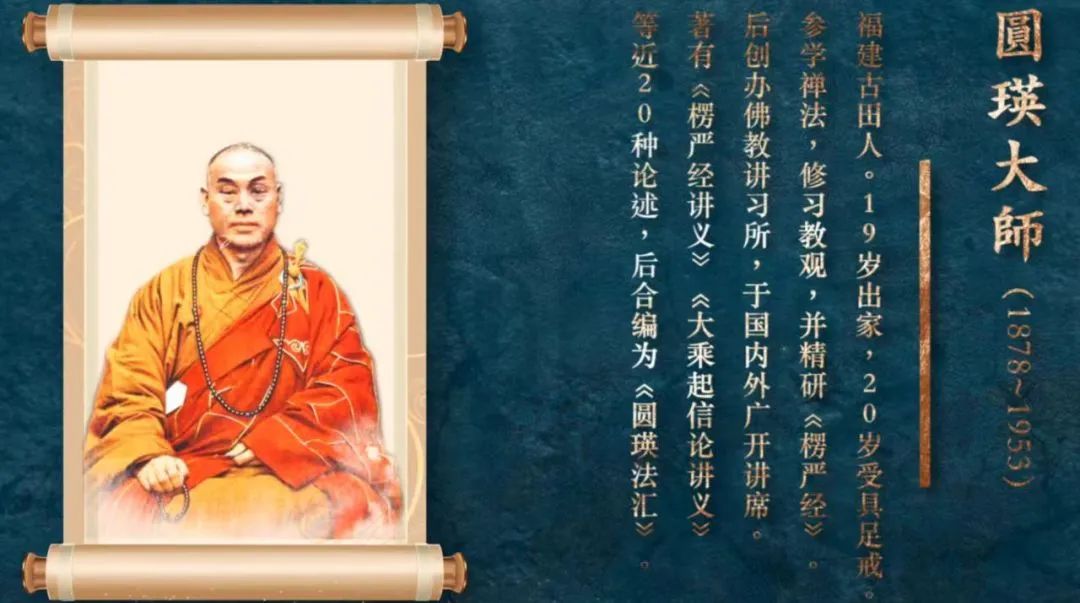 圓瑛大師（1878~1953）
福建古田人。19岁出家，20岁受具足戒。
参学禅法，修习教观，并精研《楞严经》。
后创办佛教讲习所，于国内外广开讲席。
著有《楞严经讲义》《大乘起信论讲义》
等近20种论述，后合编为《圆瑛法汇》。